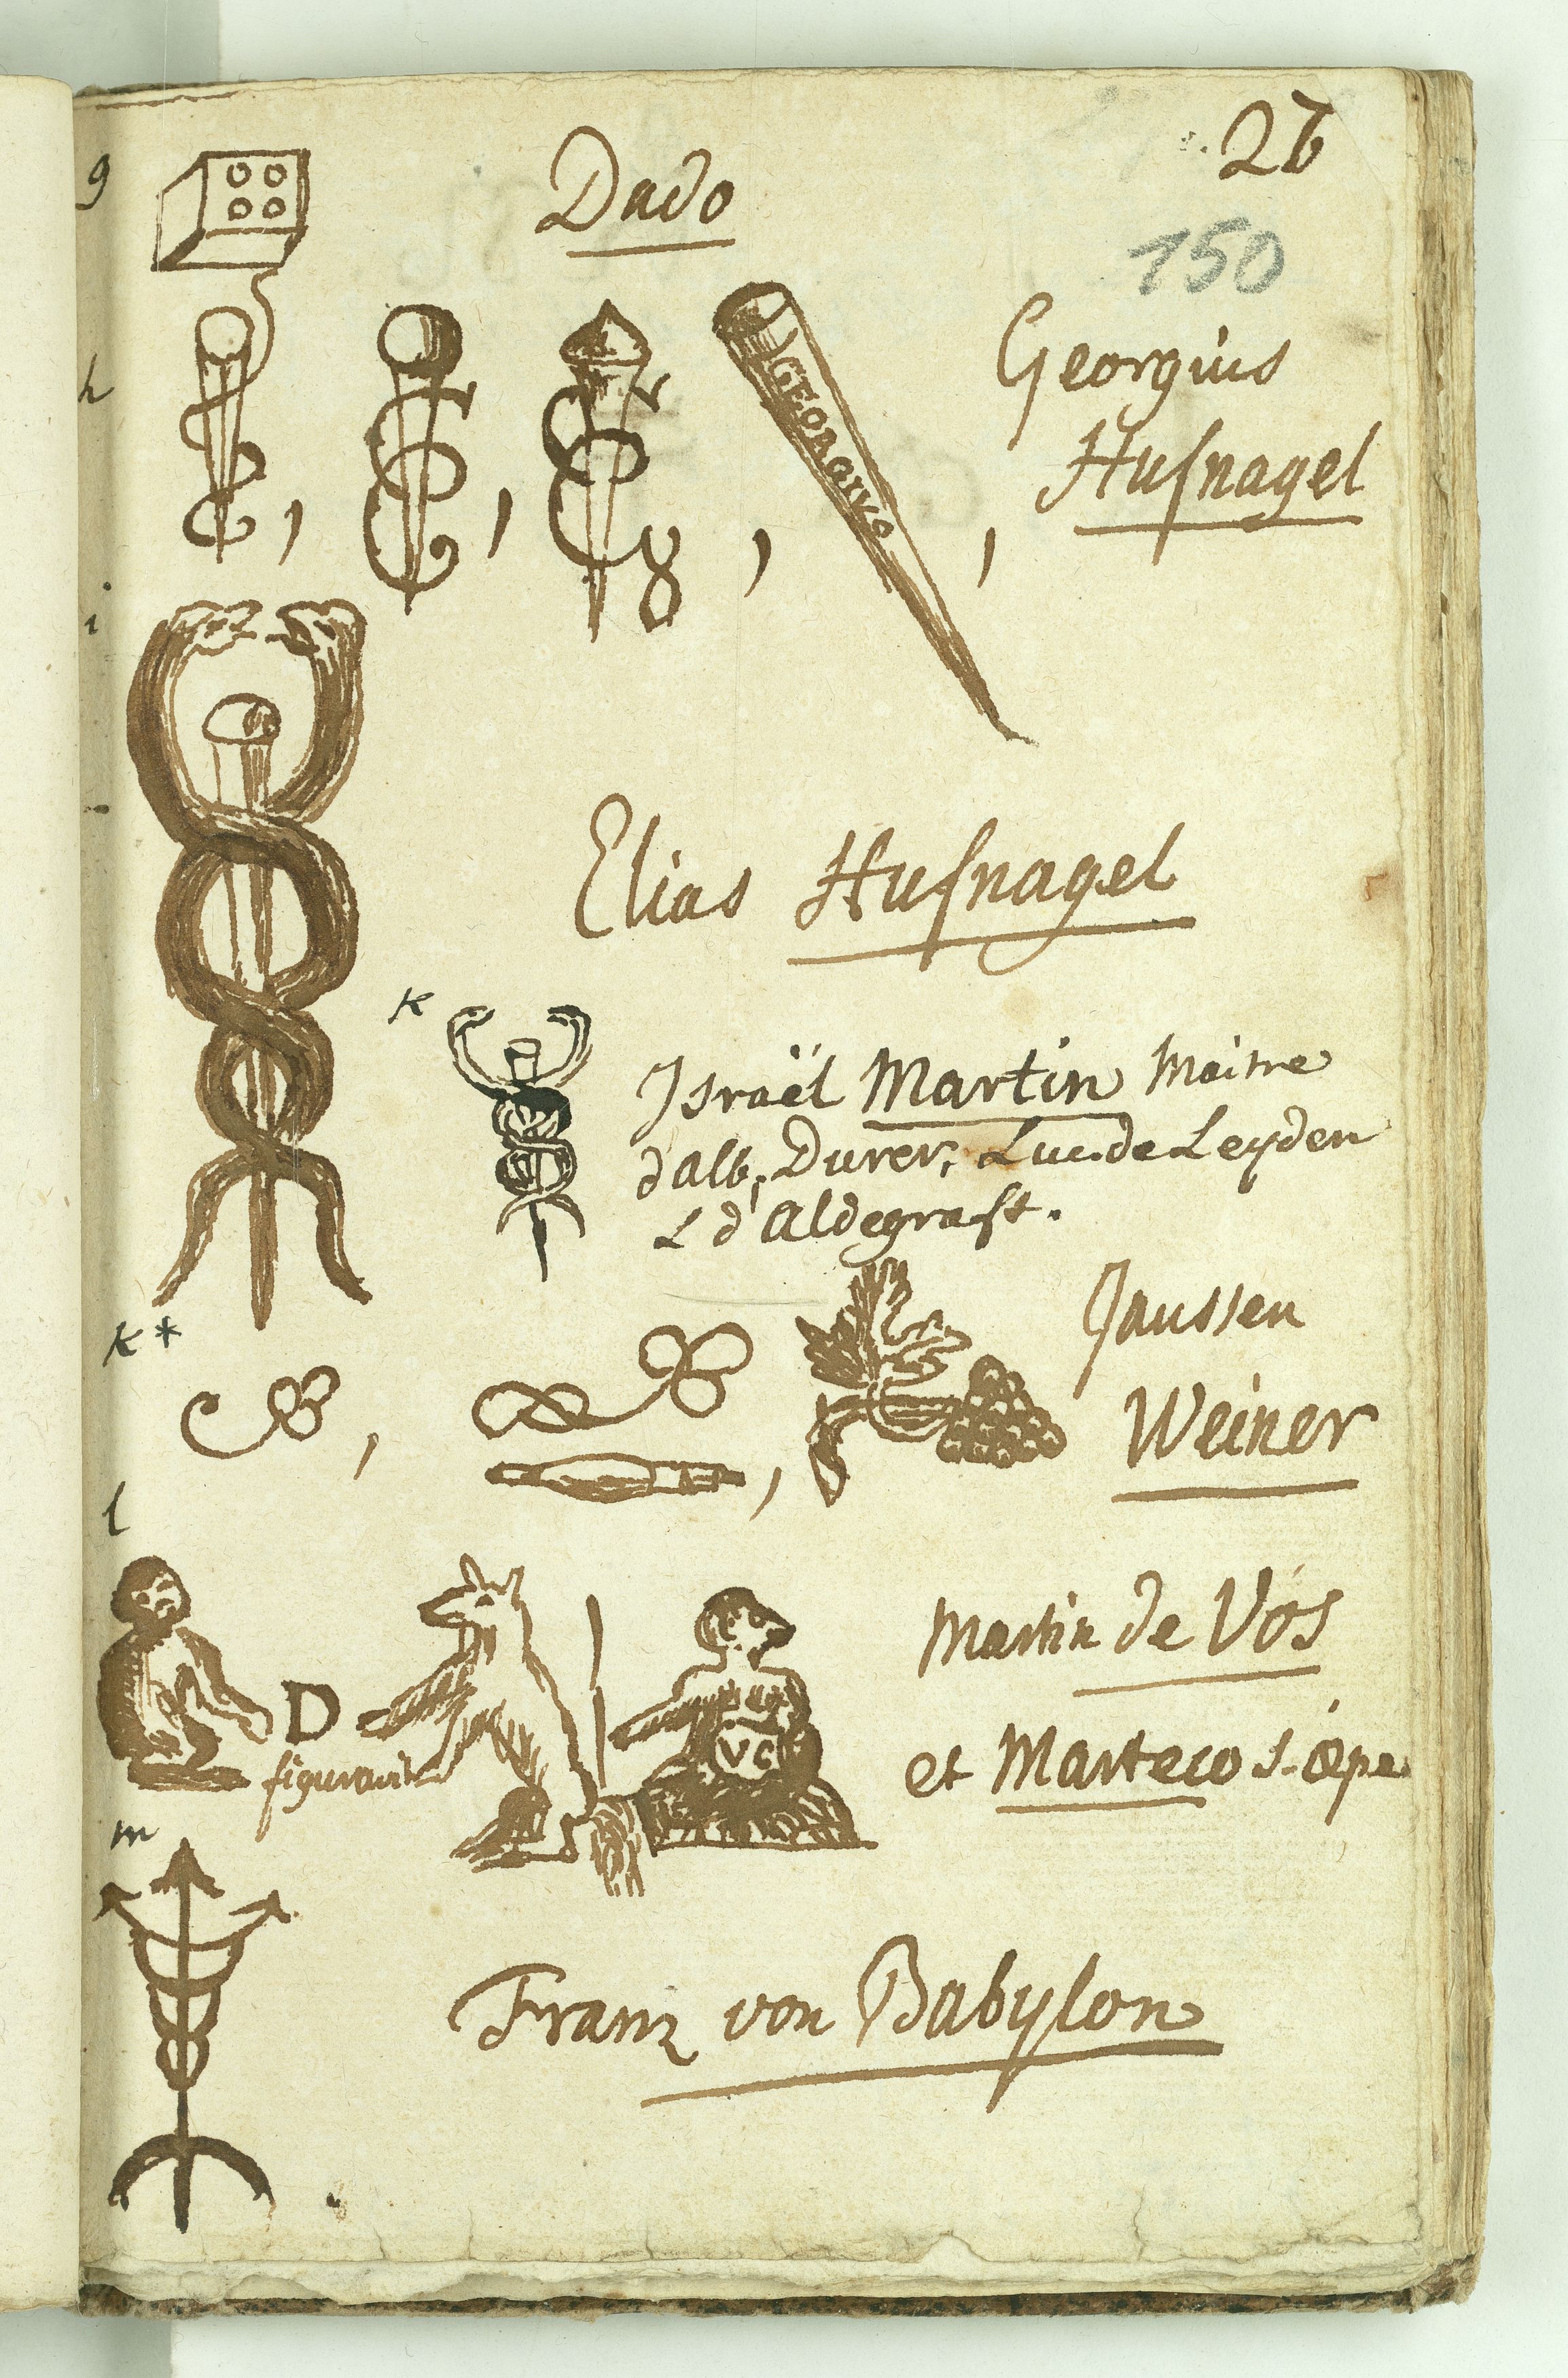 26
150
g
Dado
h
GEORGIVS
Georgius
Hufnagel
8
i
Elias Hufnagel
K
Israël Martin Maitre
d'Alb. Durer, Luc. de Leyden
d'Aldegraft.
K*
Janssen
Weiner
l
D
figuravit
VC
Martin de Vos
et Marteco
m
Franz von Babylon